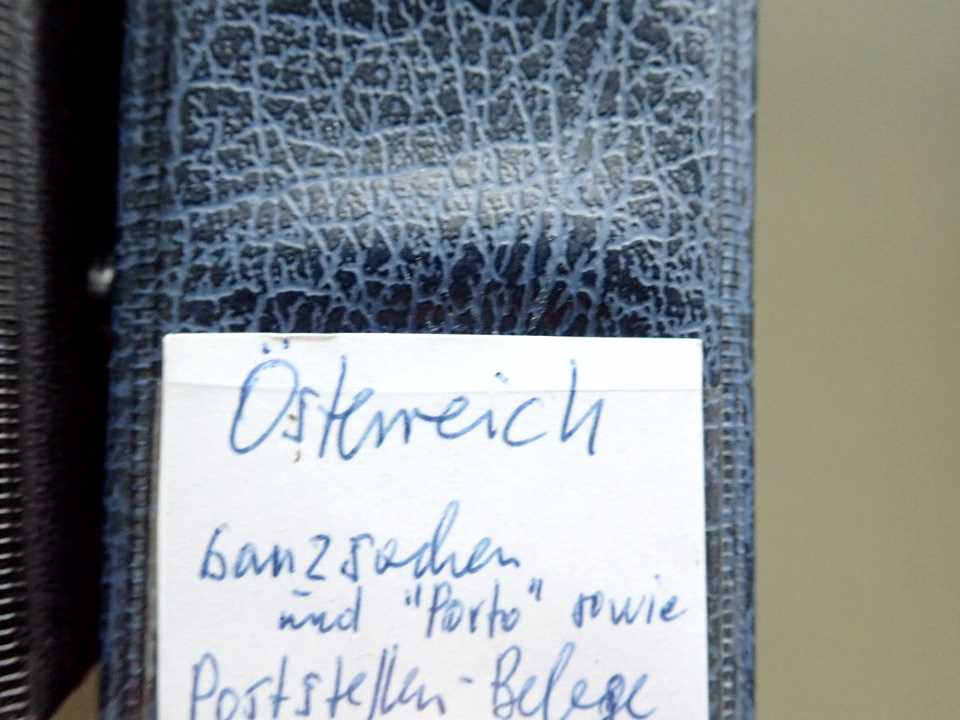 Österreich
Ganzsachen
und "Porto" sowie
Poststellen-Belege